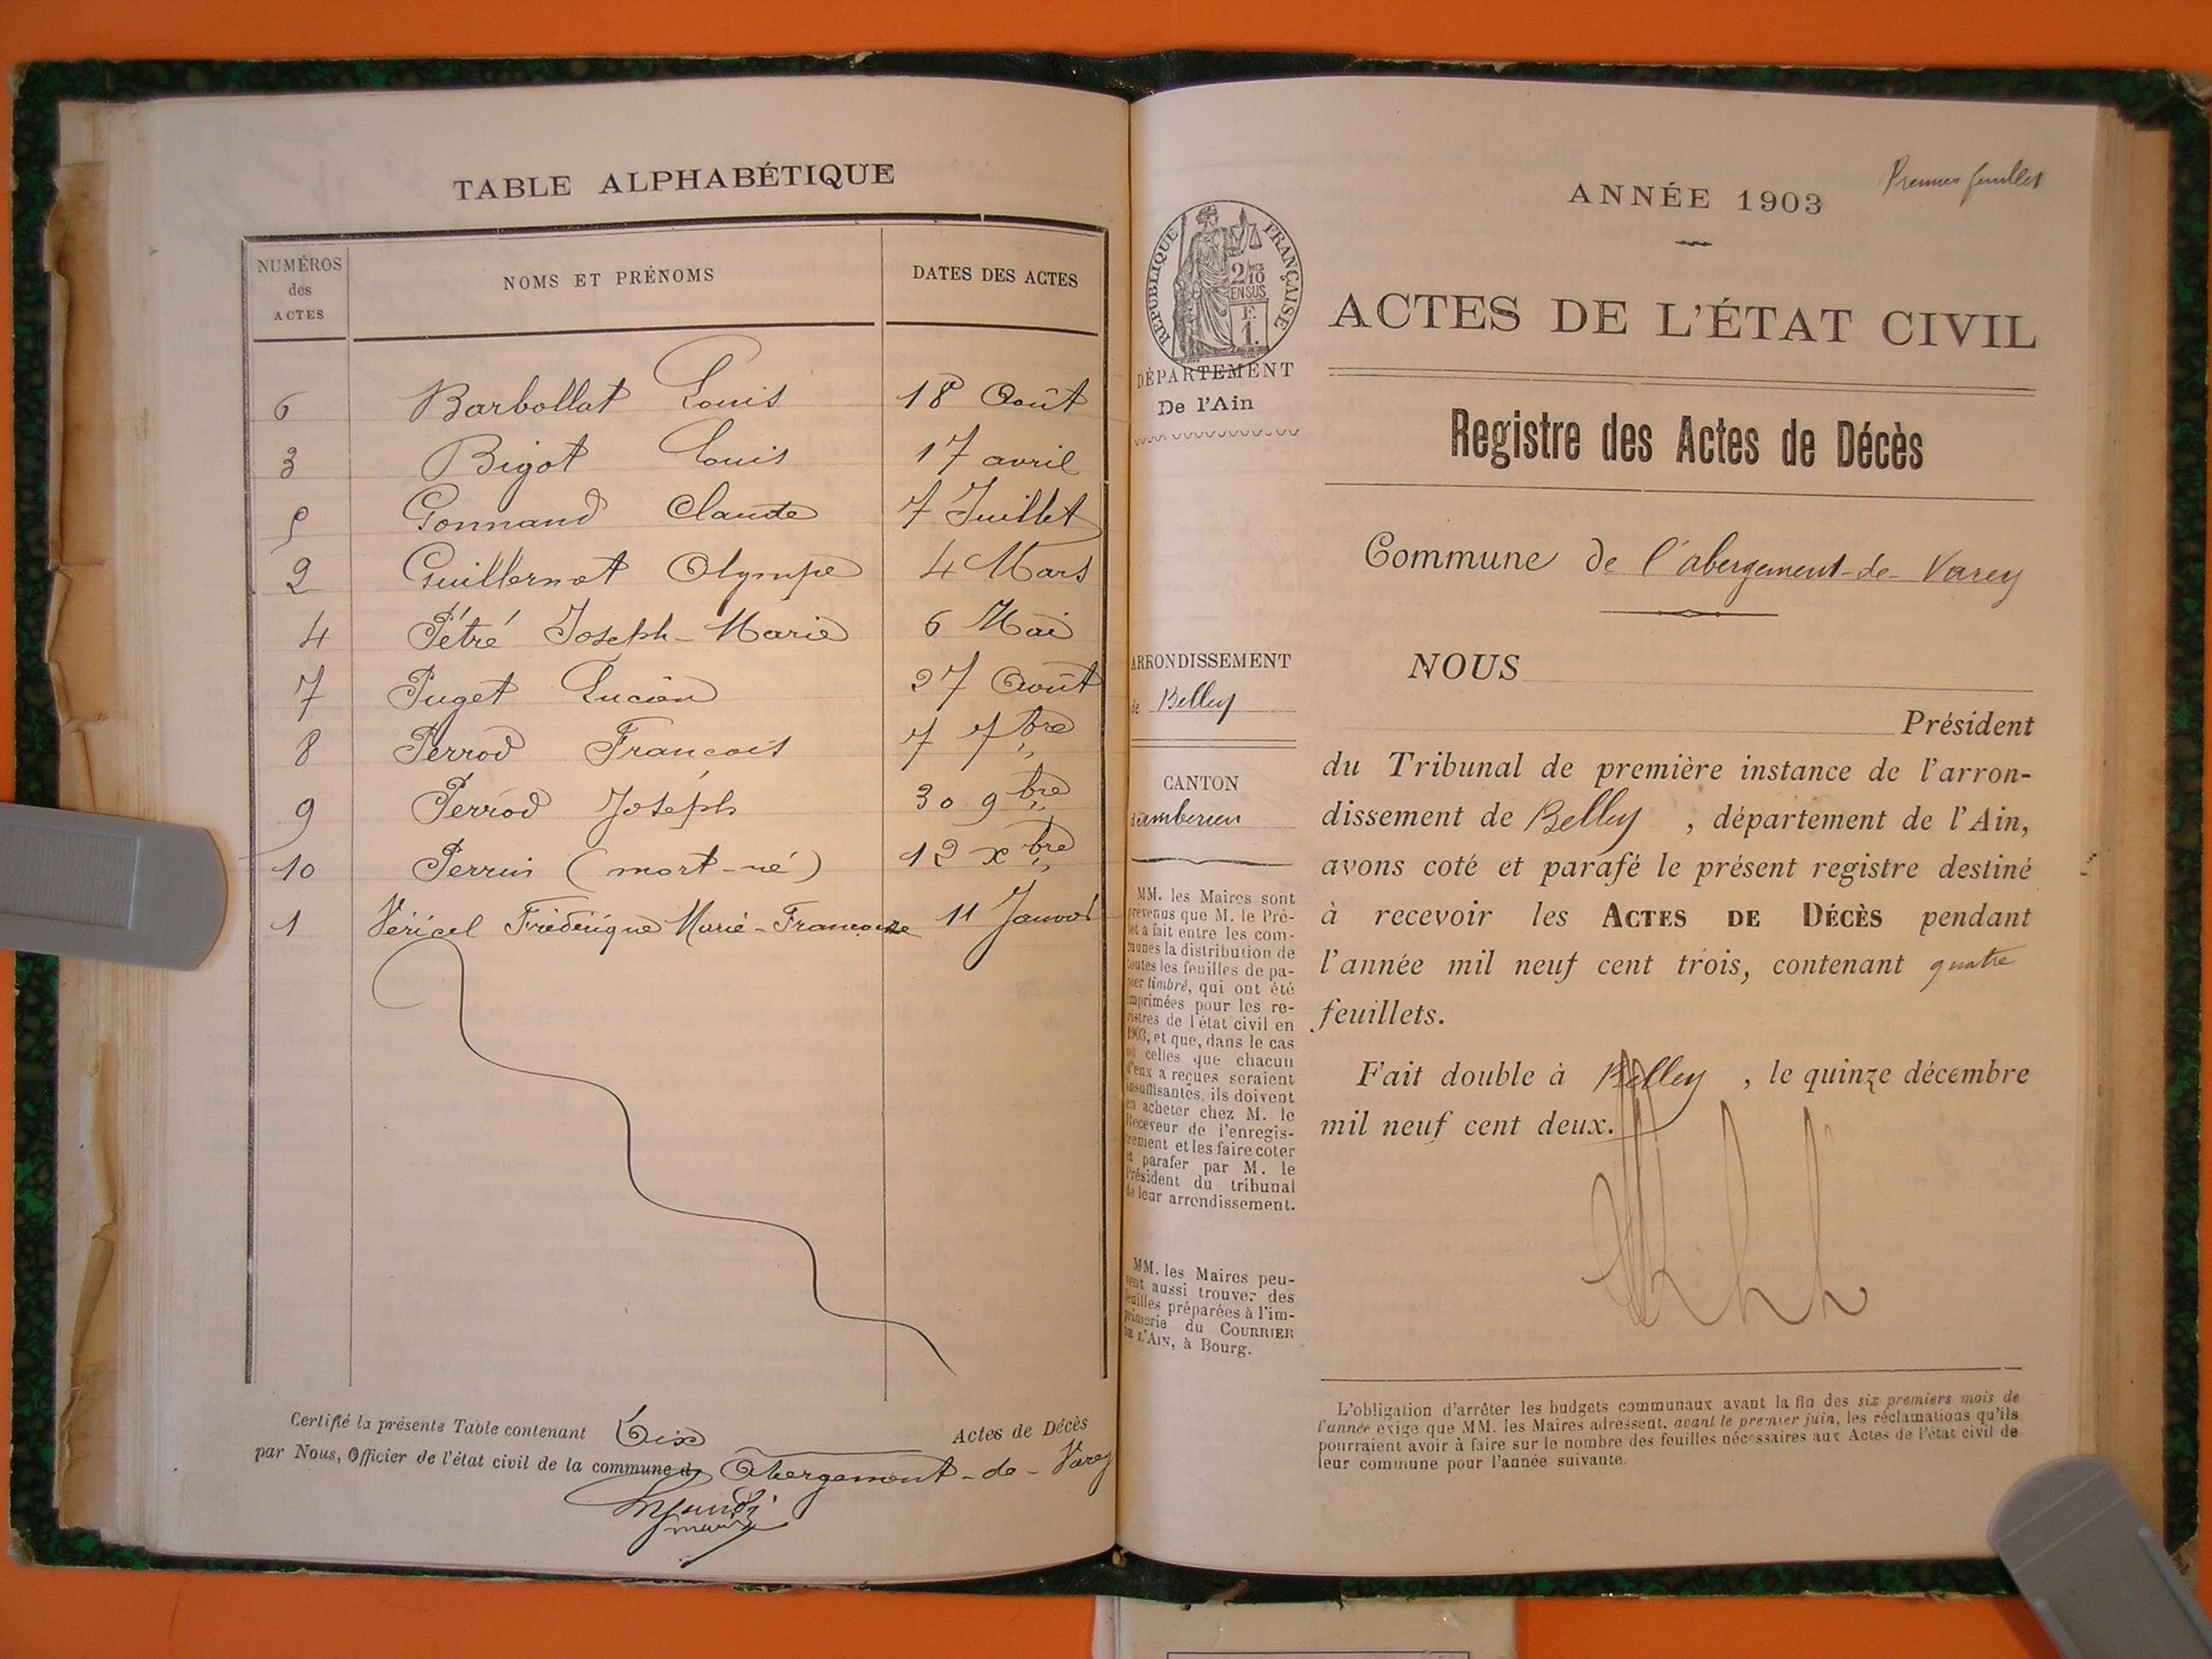 TABLE ALPHABÉTIQUE
NUMÉROS des ACTES
NOMS ET PRÉNOMS
DATES DES ACTES
6 Barbollat Louis 18 Août
3 Bigot Louis 17 avril
5 Gonnand Claude 7 Juillet
2 Guillermot Olympe 4 Mars
4 Pétré Joseph-Marie 6 Mai
7 Puget Lucien 27 Août
8 Perrod Francois 7 7bre
9 Perrod Joseph 30 9bre
10 Perrin (mort-né) 12 xbre
1 Véricel Frédérique Marie-Francoise 11 Janvier
Certifié la présente Table contenant Dix Actes de Décès
par Nous, Officier de l'état civil de la commune de Abergement-de-Varey
Premier feuillet
ANNÉE 1903
RÉPUBLIQUE FRANÇAISE
2/10
EN SUS
1.
DÉPARTEMENT
De l'Ain
ARRONDISSEMENT
de Belley
CANTON
d'ambérieu
MM. les Maires sont
prévenus que M. le Pré-
fet a fait entre les com-
munes la distribution de
toutes les feuilles de pa-
pier timbré, qui ont été
imprimées pour les re-
gistres de l'état civil en
1903, et que, dans le cas
où celles que chacun
d'eux a reçues seraient
insuffisantes, ils doivent
en acheter chez M. le
Receveur de l'enregis-
trement et les faire coter
et parafer par M. le
Président du tribunal
de leur arrondissement.
MM. les Maires peu-
vent aussi trouver des
feuilles préparées à l'im-
primerie du COURRIER
DE L'AIN, à Bourg.
ACTES DE L'ÉTAT CIVIL
Registre des Actes de Décès
Commune de l'abergement-de-Varey
NOUS
Président
du Tribunal de première instance de l'arron-
dissement de Belley, département de l'Ain,
avons coté et parafé le présent registre destiné
à recevoir les ACTES DE DÉCÈS pendant
l'année mil neuf cent trois, contenant quatre
feuillets.
Fait double à Belley, le quinze décembre
mil neuf cent deux.
L'obligation d'arrêter les budgets communaux avant la fin des six premiers mois de
l'année exige que MM. les Maires adressent, avant le premier juin, les réclamations qu'ils
pourraient avoir à faire sur le nombre des feuilles nécessaires aux Actes de l'état civil de
leur commune pour l'année suivante.